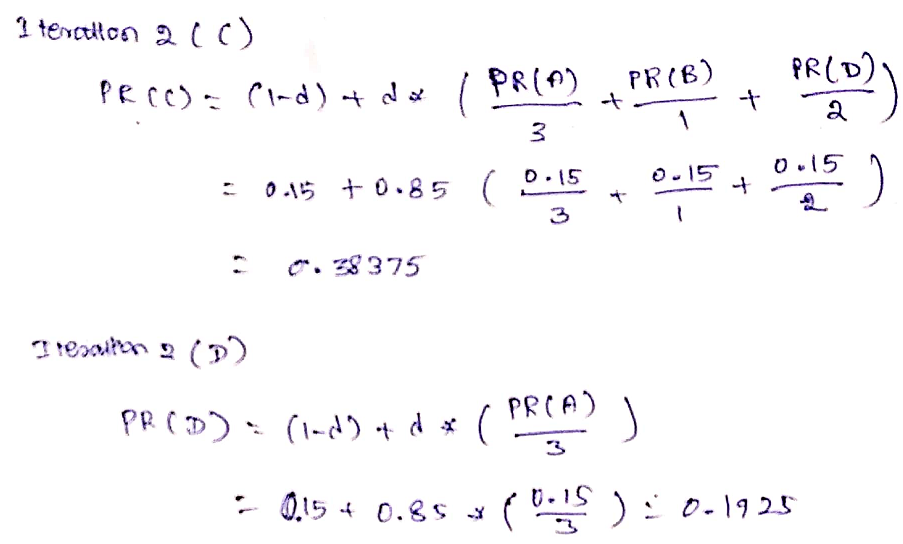 Iteration 2 (C)
PR(C) = (1-d) + d * ( PR(A)/3 + PR(B)/1 + PR(D)/2 )
= 0.15 + 0.85 ( 0.15/3 + 0.15/1 + 0.15/2 )
= 0.38375
Iteration 2 (D)
PR(D) = (1-d) + d * ( PR(A)/3 )
= 0.15 + 0.85 * ( 0.15/3 ) = 0.1925